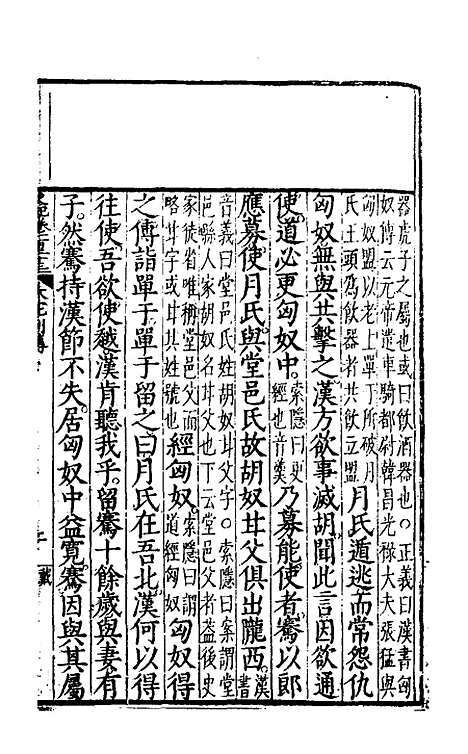 器虎子之屬也或曰飲酒器也○正義曰漢書匈
奴傳云元帝遣車騎都尉韓昌光祿大夫張猛與
匈奴盟以老上單于所破月
氏王頭爲飲器者共飲血盟
月氏遁逃而常怨仇
匈奴無與共擊之漢方欲事滅胡聞此言因欲通
使道必更匈奴中
索隱曰更
經也音羹
乃募能使者騫以郎
應募使月氏與堂邑氏故胡奴甘父俱出隴西
漢
書
音義曰堂邑氏姓胡奴甘父字○索隱曰案謂堂
邑縣人家胡奴名甘父也下云堂邑父者蓋後史
家從省唯稱堂邑父而
略甘字或甘其姓號也
經匈奴
索隱曰謂
道經匈奴
匈奴得
之傳詣單于單于留之曰月氏在吾北漢何以得
往使吾欲使越漢肯聽我乎留騫十餘歲與妻有
子然騫持漢節不失居匈奴中益寬騫因與其屬